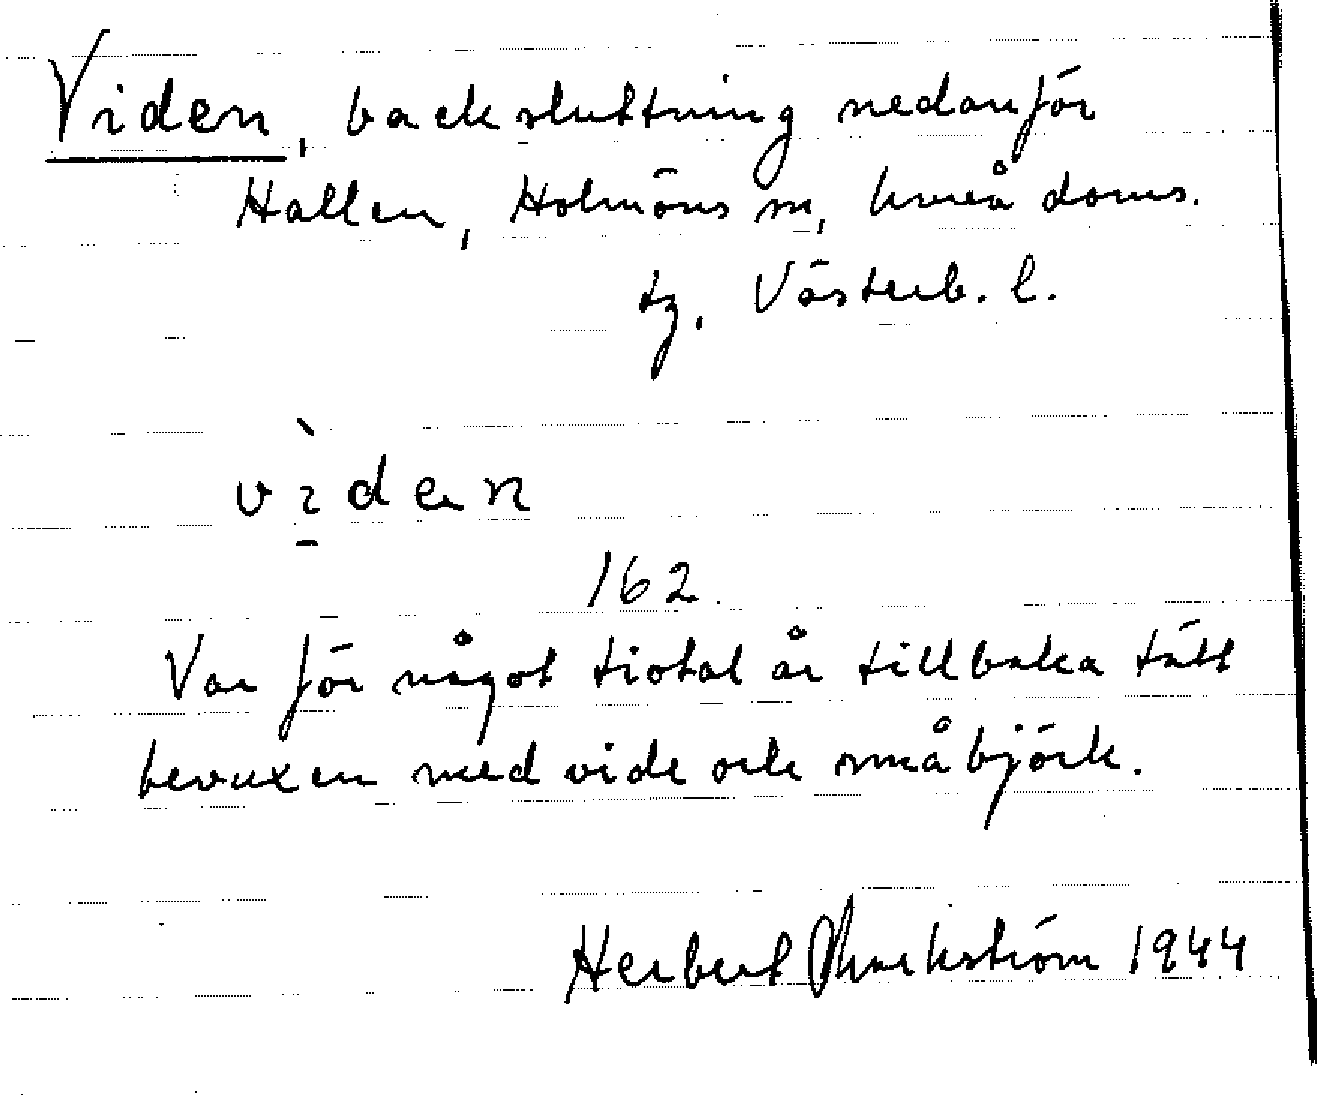 Viden, backsluttning nedanför
Hallen, Holmöns sn, Umeå doms.
tg. Västerb. l.
vìden
162.
Var för något tiotal år tillbaka tätt
bevuxen med vide och småbjörk.
Herbert Markström 1944